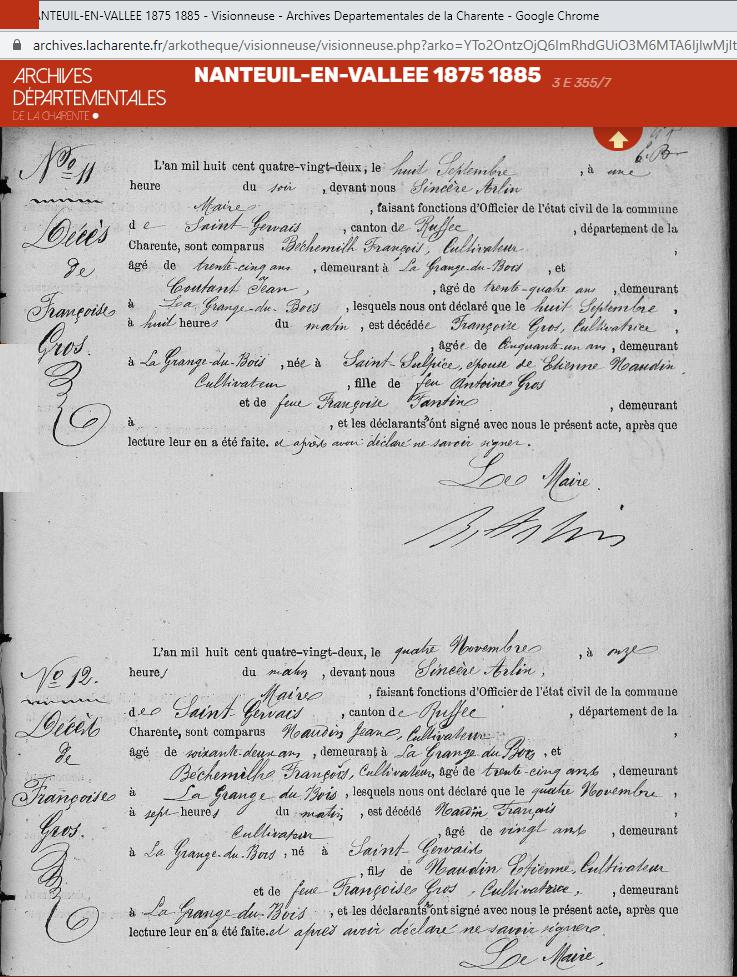 NANTEUIL-EN-VALLEE 1875 1885 - Visionneuse - Archives Departementales de la Charente - Google Chrome
archives.lacharente.fr/arkotheque/visionneuse/visionneuse.php?arko=YTo2OntzOjQ6ImRhdGUiO3M6MTA6IjIwMjIt
ARCHIVES
DÉPARTEMENTALES
DE LA CHARENTE
NANTEUIL-EN-VALLEE 1875 1885 3 E 355/7
No 11
Décès
de
Françoise
Gros.
L'an mil huit cent quatre-vingt-deux, le huit Septembre, à une
heure du soir, devant nous Sincère Arlin
Maire, faisant fonctions d'Officier de l'état civil de la commune
de Saint-Gervais, canton de Ruffec, département de la
Charente, sont comparus Béchemilh François, Cultivateur,
âgé de trente-cinq ans, demeurant à La Grange-du-Bois, et
Coutant Jean, âgé de trente-quatre ans, demeurant
à La Grange-du-Bois, lesquels nous ont déclaré que le huit Septembre,
à huit heures du matin, est décédée Françoise Gros, Cultivatrice,
, âgée de Cinquante-un ans, demeurant
à La Grange-du-Bois, née à Saint-Sulpice, épouse de Etienne Naudin
Cultivateur, fille de feu Antoine Gros
et de feue Françoise Fantin, demeurant
à , et les déclarants ont signé avec nous le présent acte, après que
lecture leur en a été faite. et après avoir déclaré ne savoir signer.
Le Maire.
S. Arlin
No 12.
Décès
de
Françoise
Gros.
L'an mil huit cent quatre-vingt-deux, le quatre Novembre, à onze
heures du matin, devant nous Sincère Arlin,
Maire, faisant fonctions d'Officier de l'état civil de la commune
de Saint-Gervais, canton de Ruffec, département de la
Charente, sont comparus Naudin Jean, Cultivateur,
âgé de soixante-deux ans, demeurant à La Grange du Bois, et
Béchemilh François, Cultivateur, âgé de trente-cinq ans, demeurant
à La Grange du Bois, lesquels nous ont déclaré que le quatre Novembre,
à sept heures du matin, est décédé Naudin François,
Cultivateur, âgé de vingt ans, demeurant
à La Grange-du-Bois, né à Saint-Gervais
, fils de Naudin Etienne, Cultivateur
et de feue Françoise Gros, Cultivatrice, demeurant
à La Grange-du-Bois, et les déclarants ont signé avec nous le présent acte, après que
lecture leur en a été faite. et après avoir déclaré ne savoir signer.
Le Maire,